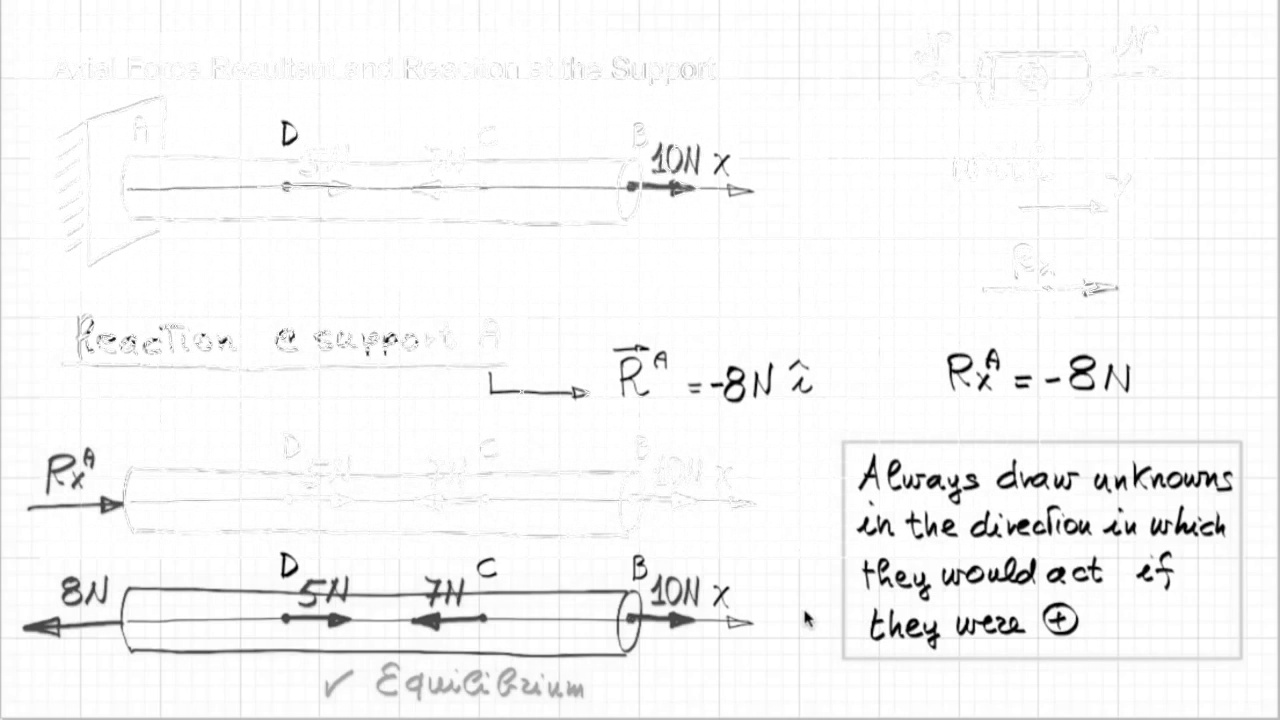 Axial Force Resultant and Reaction at the Support
N N
A D C B
5N 7N 10N x
x
Rx
Reaction @ support A
R⃗ᴬ = -8N î
Rxᴬ = -8N
D C B
Rxᴬ 5N 7N 10N x
D C B
8N 5N 7N 10N x
✓ Equilibrium
Always draw unknowns
in the direction in which
they would act if
they were ⊕